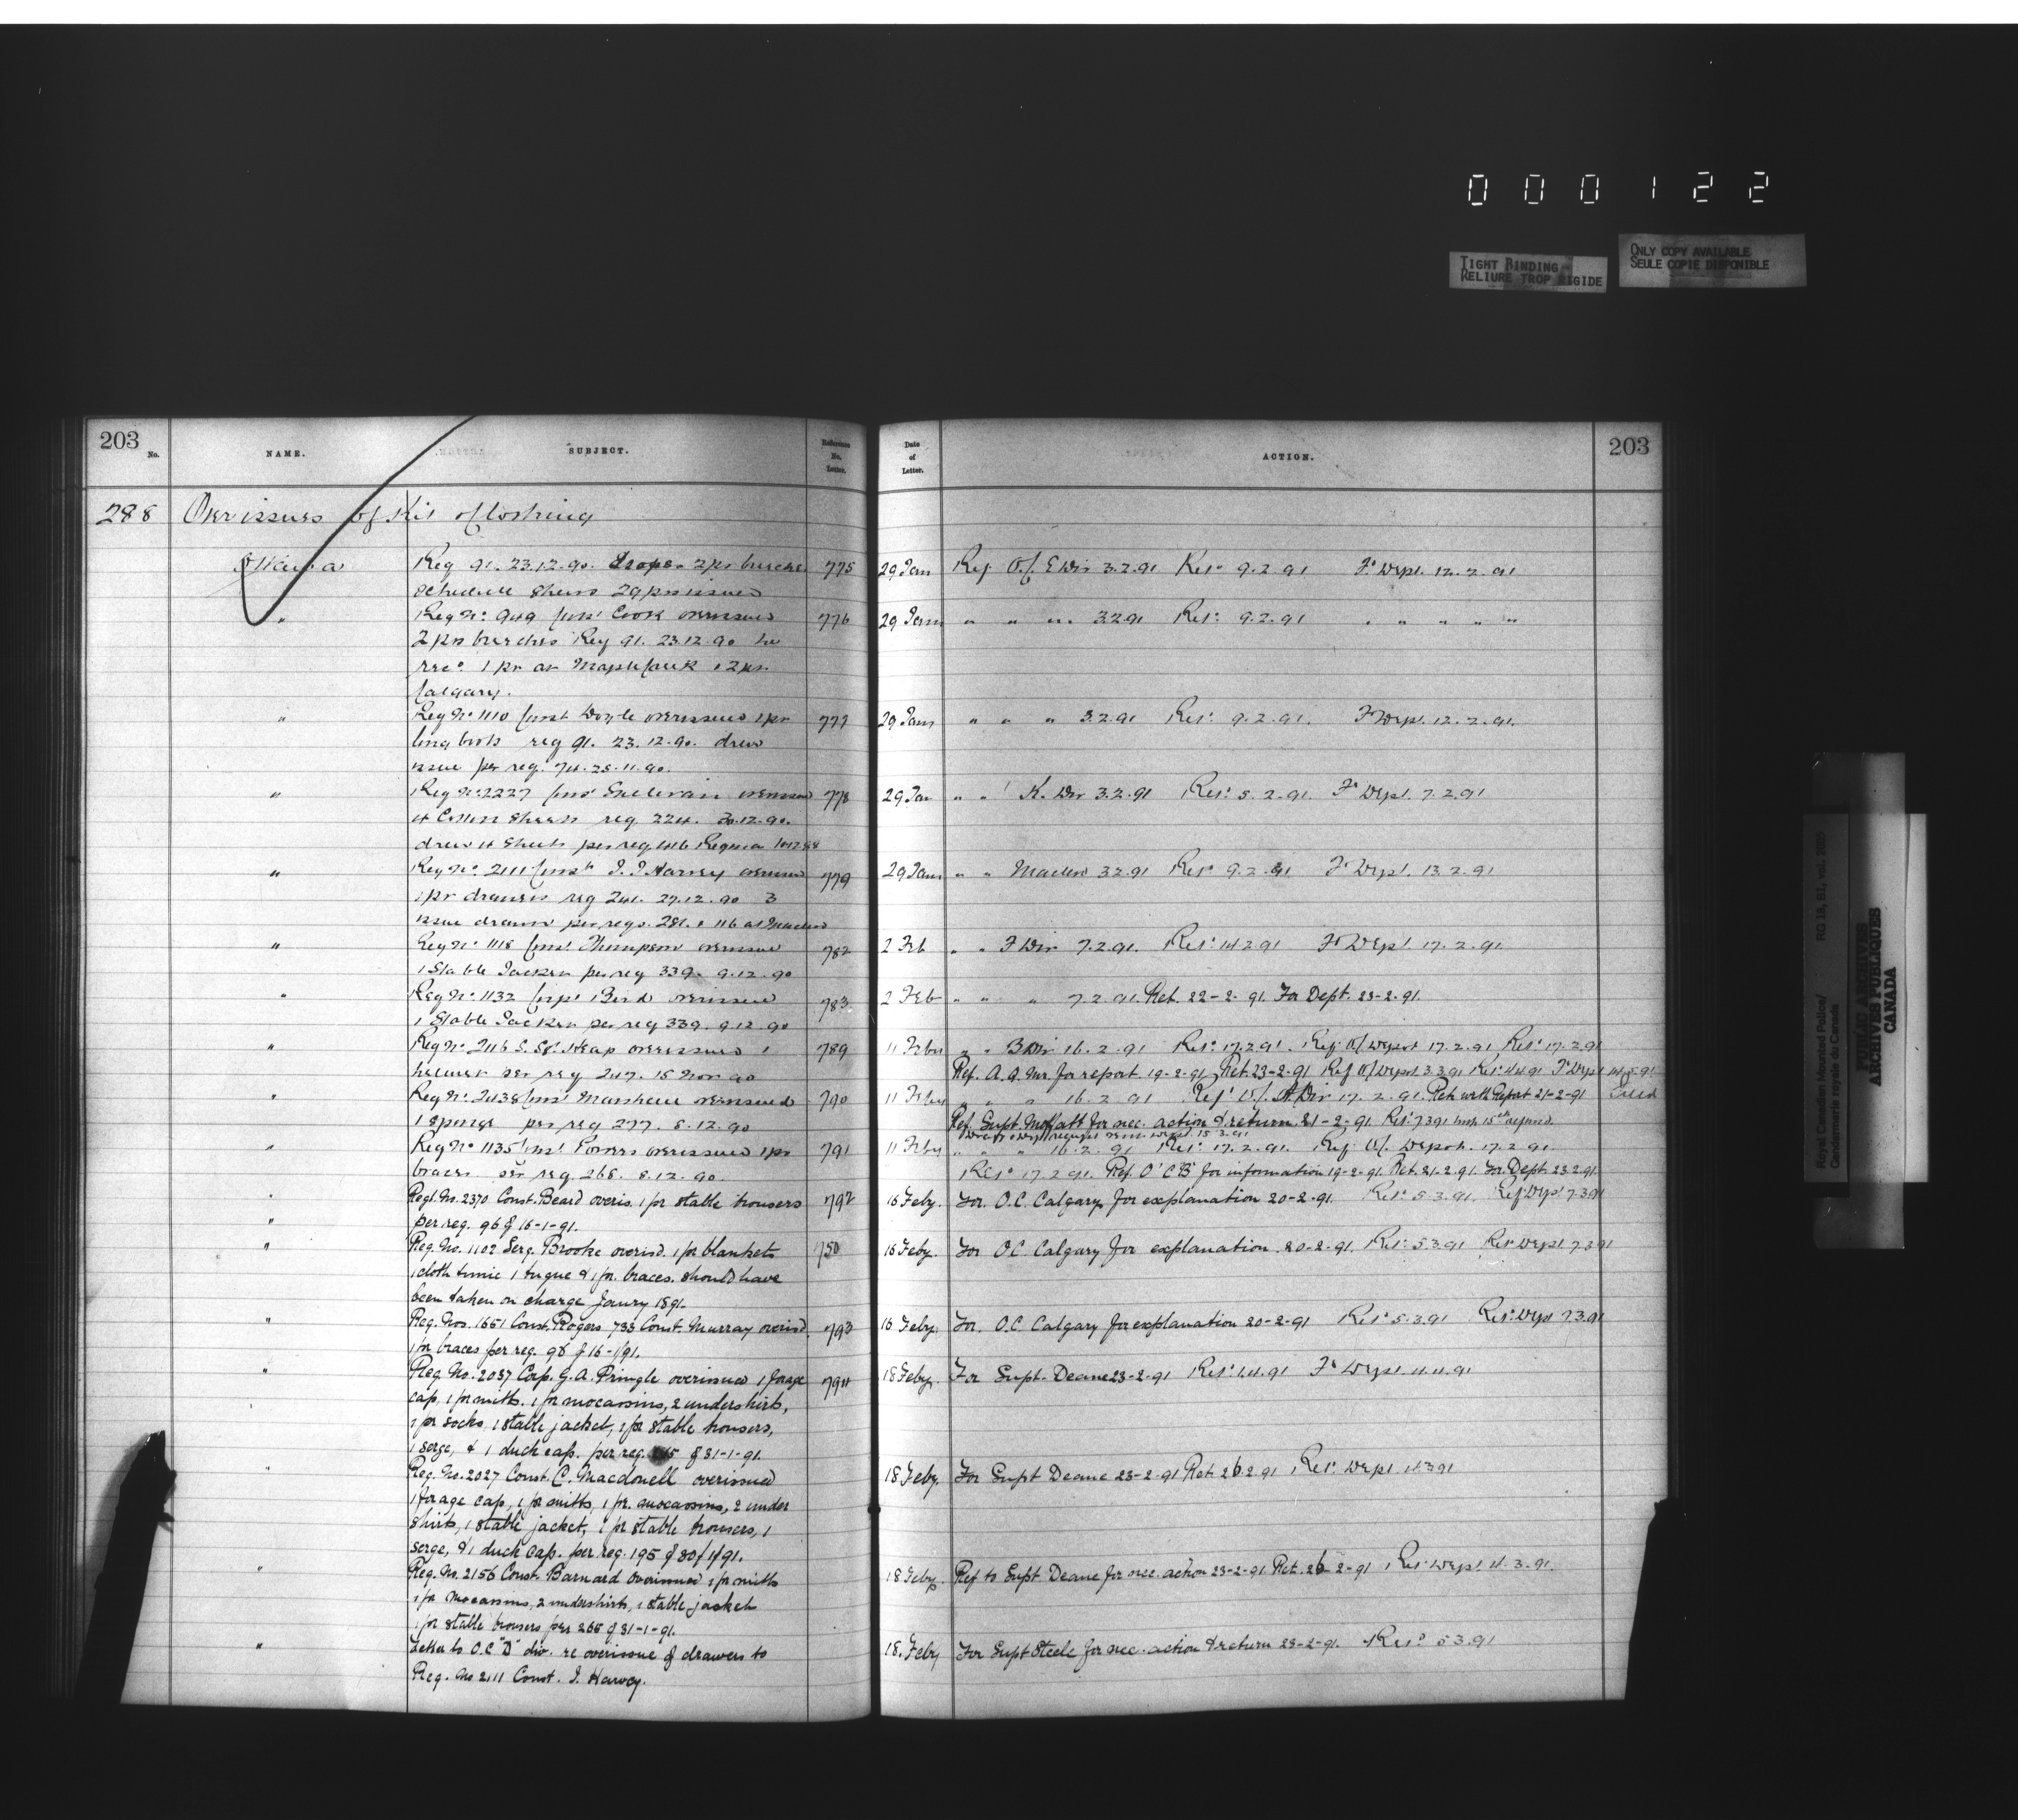 000122
TIGHT BINDING
RELIURE TROP RIGIDE
ONLY COPY AVAILABLE
SEULE COPIE DISPONIBLE
203
No.
NAME.
SUBJECT.
Reference No. Letter.
Date of Letter.
ACTION.
203
288 Over issues of Kit of Clothing
Ottawa Req 91. 23.12.90. 2 prs 775 29 Jan Ref O/C E Div 3.2.91 Ret: 9.2.91 Fr Dept. 12.2.91
schedule shews 29 prs issued
" Reg No: 949 Const Cook overissued 776 29 Jan " " " 3.2.91 Ret: 9.2.91 " " " " "
2 prs breeches Req 91. 23.12.90 he
rec: 1 pr at Maple Creek & 2 prs.
Calgary.
" Reg No 1110 Const Doyle overissued 1 pr 777 29 Jan " " " 3.2.91 Ret: 9.2.91. Fr Dept. 12.2.91.
long boots req 91. 23.12.90. drew
issue per req. 74. 25.11.90.
" Reg No: 2227 Const Sullivan overissued 778 29 Jan " " K. Div 3.2.91 Ret: 5.2.91. Fr Dept. 7.2.91
4 Cotton Sheets req. 224. 30.12.90.
drew 4 Sheets per req 416 Regina
" Reg No: 2111 Const J. J Harvey overissued 779 29 Jan " " Macleod 3.2.91 Ret: 9.2.91 Fr Dept. 13.2.91
1 pr drawers req 241. 27.12.90 3
issue drawn per reqs. 281. & 116 at Macleod
" Reg No: 1118 Const Thompson overissued 782 2 Feb " " F Div 7.2.91. Ret: 14.2.91 Fr Dept. 17.2.91.
1 Stable Jacket per req 339. 9.12.90
" Reg No: 1132 Corpl Bird overissued 783 2 Feb " " " 7.2.91. Ret. 22-2-91. For Dept. 23-2-91.
1 Stable Jacket per req 339. 9.12.90
" Reg No: 2116 S. Sgt. Heap overissued 1 789 11 Feby " " B Div 16.2.91 Ret: 17.2.91. Ref O/C Depot 17.2.91, Ret: 17.2.91
helmet per req 247. 15 Nov 90 Ref. A.Q.Mr. for report. 19-2-91, Ret. 23-2-91 Ref O/C Depot 3.3.91 Ret: 4.4.91 Fr Dept 14.5.91
" Reg No: 2438 Const Marshall overissued 790 11 Feby " " " 16.2.91 Ref O/C A Div 17.2.91. Retd with Report 21-2-91
1 sponge per req 277. 8.12.90 Ref. Supt. Moffatt for nec. action & return. 21-2-91. Ret: 7.3.91
" Reg No: 1135 Const Powers overissued 1 pr 791 11 Feby " " " 16.2.91 Ret: 17.2.91. Ref O/C Depot. 17.2.91.
braces per req. 268. 8.12.90. Ret: 17.2.91. Ref. O'C'B' for information 19-2-91. Ret. 21-2-91. For Dept. 23.2.91
" Regl. No. 2370 Const. Beard overis. 1 pr stable trousers 792 16 Feby. For. O.C. Calgary for explanation 20-2-91. Ret: 5.3.91. Ref Dept 7.3.91
" per req. 96 of 16-1-91.
" Reg. No. 1102 Serg. Brooke overisd. 1 pr blankets 750 16 Feby. For O.C. Calgary for explanation. 20-2-91. Ret: 5.3.91 Ret Dept. 7.3.91
1 cloth tunic 1 tuque & 1 pr. braces. Should have
been taken on charge Janry 1891.
" Reg. Nos. 1651 Const. Rogers 733 Const. Murray overisd. 793 16 Feby. For. O.C. Calgary for explanation 20-2-91 Ret: 5.3.91 Ret: Dept 7.3.91
1 pr braces per req. 98 of 16-1/91.
" Reg. No. 2037 Corp. G. A. Pringle overissued 1 forage 794 18 Feby. For Supt. Deane 23-2-91 Ret: 1.4.91 Fr Dept. 4.4.91
cap, 1 pr mitts. 1 pr mocassins, 2 undershirts,
1 pr socks, 1 stable jacket, 1 pr stable trousers,
1 serge, & 1 duck cap. per req. of 31-1-91.
" Reg. No. 2027 Const. C. Macdonell overissued 18 Feby. For Supt Deane 23-2-91 Ret. 26.2.91 Ret. Dept. 4.3.91
1 forage cap, 1 pr mitts, 1 pr. mocassins, 2 under
shirts, 1 stable jacket, 1 pr stable trousers, 1
serge, & 1 duck cap. per req. 195 of 30/1/91.
" Reg. No. 2156 Const. Barnard overissued 1 pr mitts 18 Feby. Ref to Supt Deane for nec. action 23-2-91 Ret. 26-2-91 Ret: Dept. 4.3.91.
1 pr Mocassins, 2 undershirts, 1 stable jacket
1 pr stable trousers per 265 of 31-1-91.
" Letter to O.C "D" div. re overissue of drawers to 18. Feby For Supt Steele for nec. action & return 23-2-91. Ret: 5.3.91
Reg. No 2111 Const. J. Harvey.
Royal Canadian Mounted Police/
Gendarmerie royale du Canada
RG 18, B1, vol.
PUBLIC ARCHIVES
ARCHIVES PUBLIQUES
CANADA